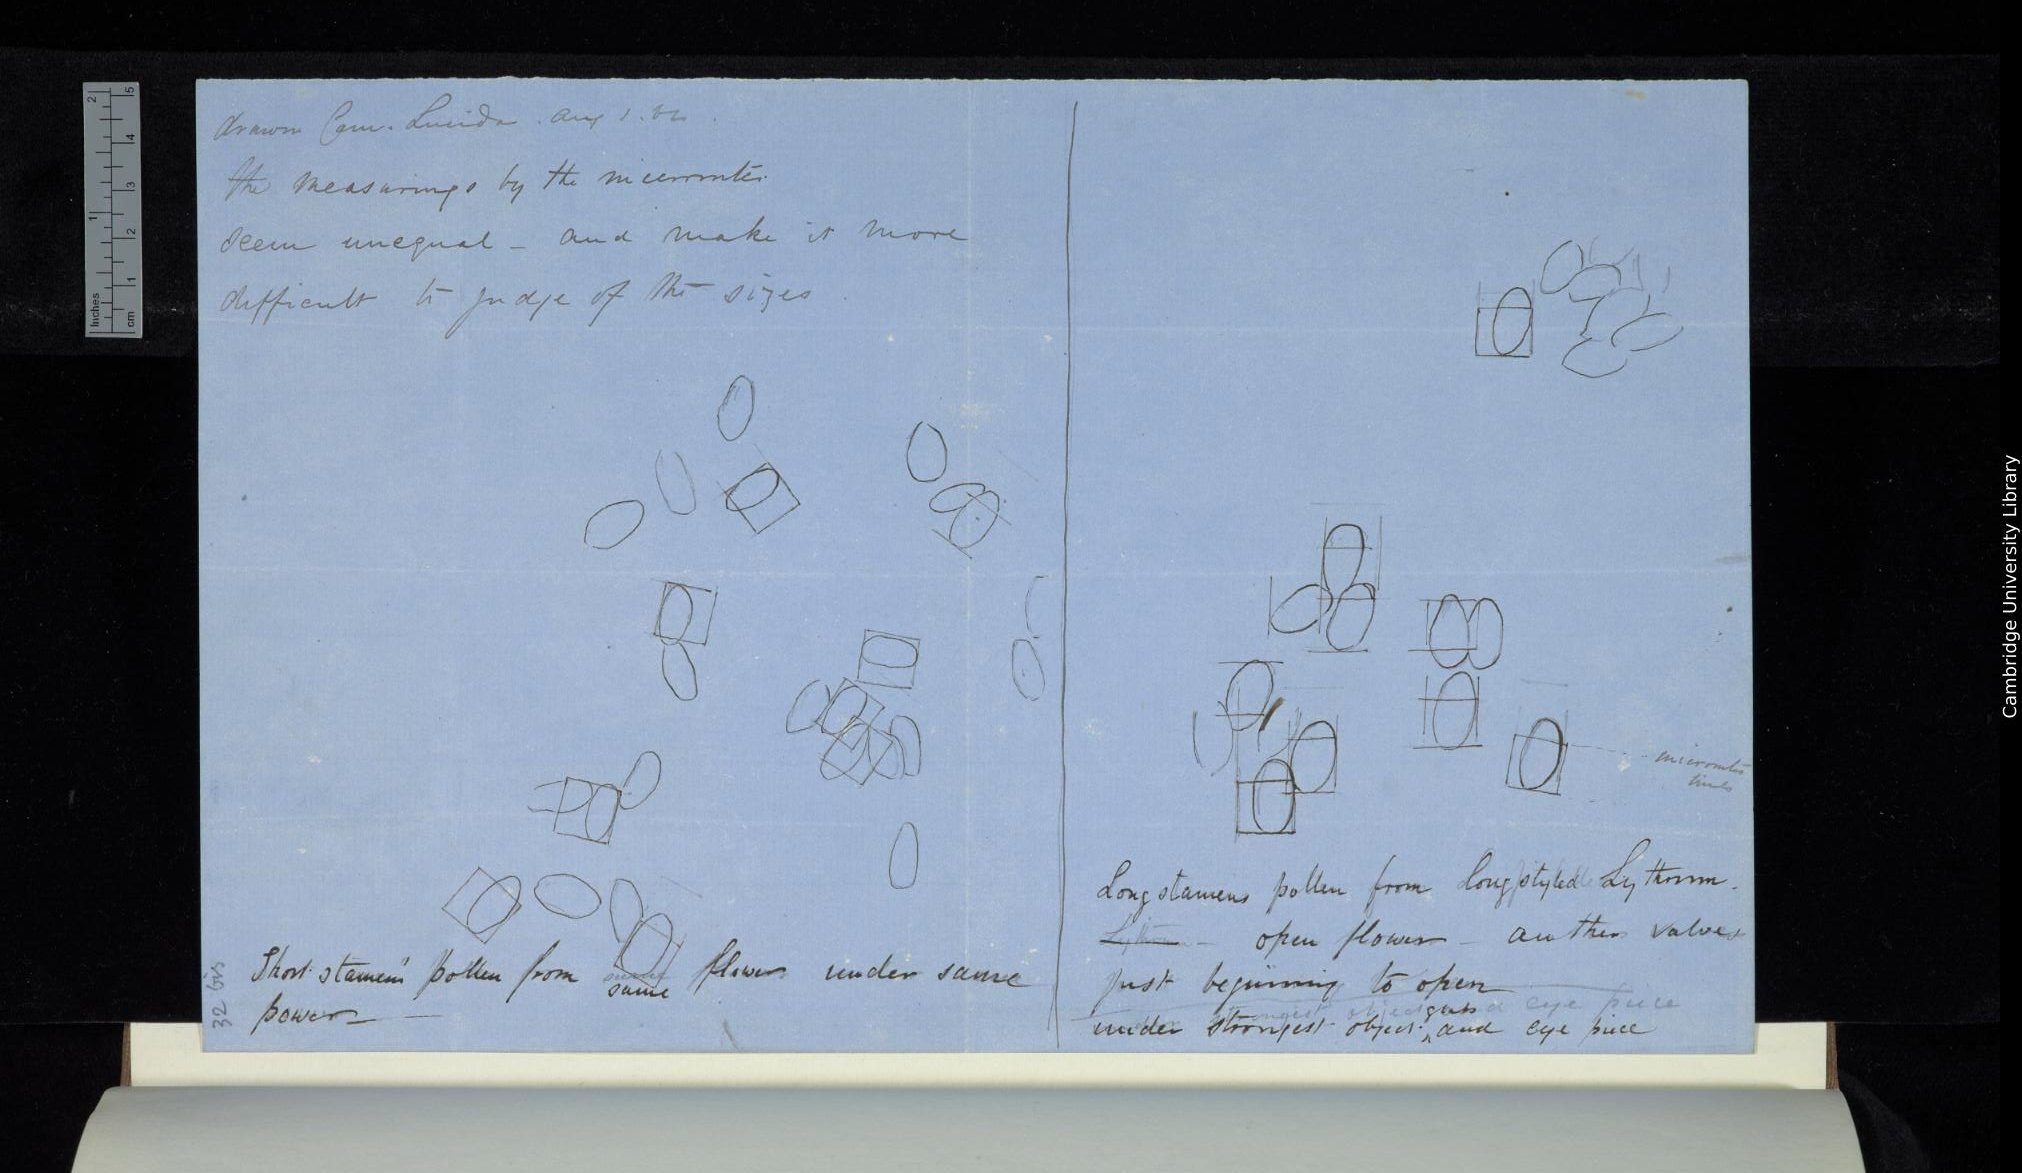 drawn Cam. Lucida. Aug 1. 62.
the measurings by the micrometer
seem unequal – and make it more
difficult to judge of the sizes.
micrometer
lines
Short stamen's pollen from same flower under same
power –
Long stamens pollen from long styled Lythrum.
Lythrum – open flower – anther valves
just beginning to open
under strongest object glass and eye piece
32 bis
Inches
1
2
cm
1
2
3
4
5
Cambridge University Library